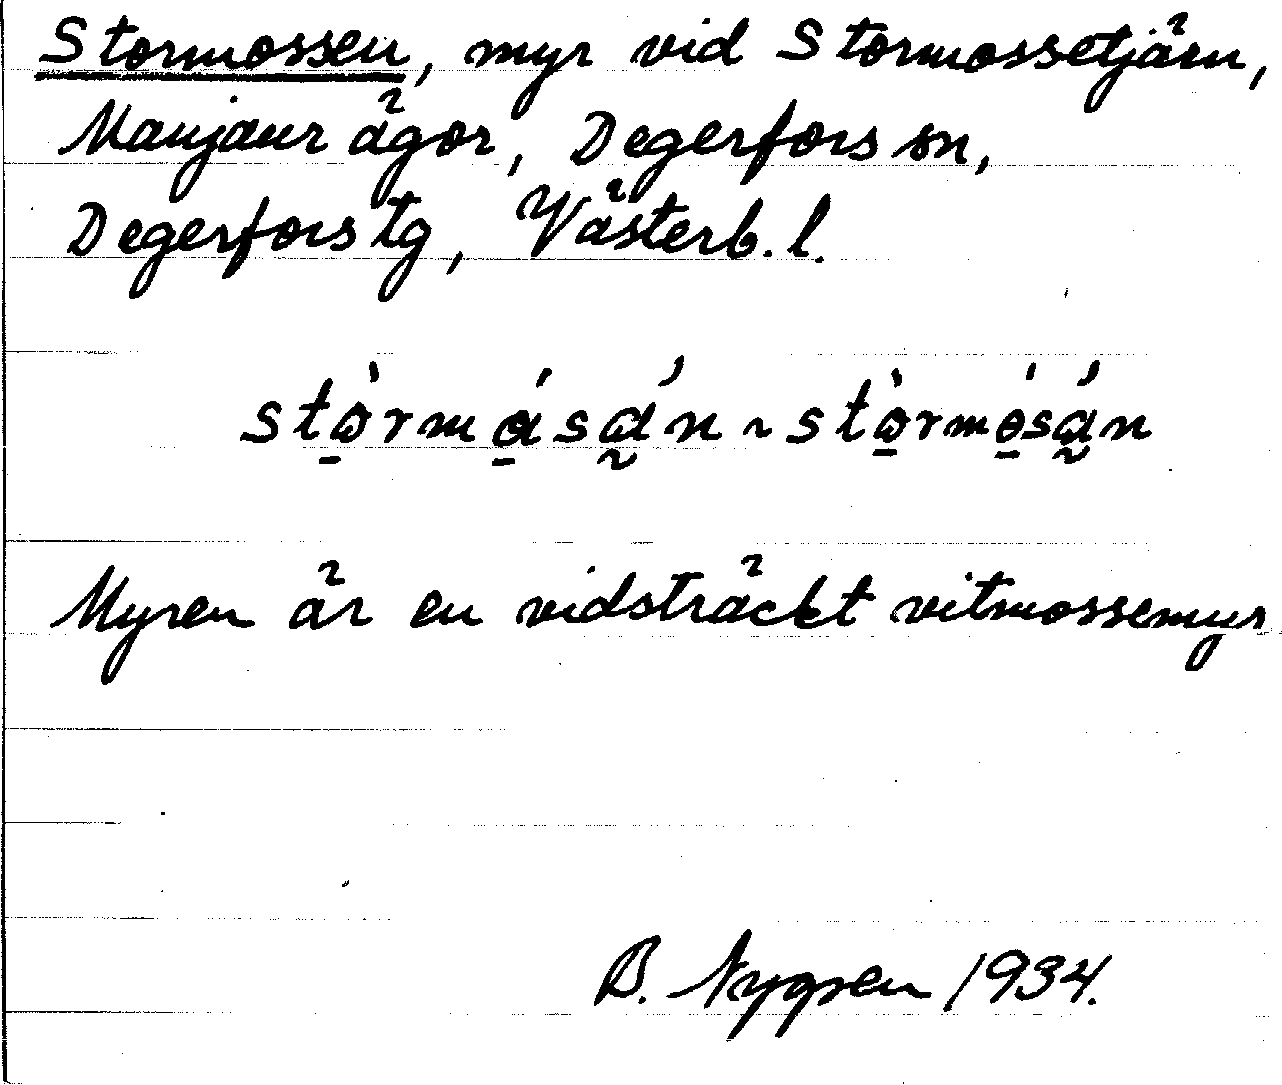 Stormossen, myr vid Stormossetjärn,
Manjaur ägor, Degerfors sn,
Degerfors tg, Västerb. l.
Myren är en vidsträckt vitmossemyr.
B. Nygren 1934.